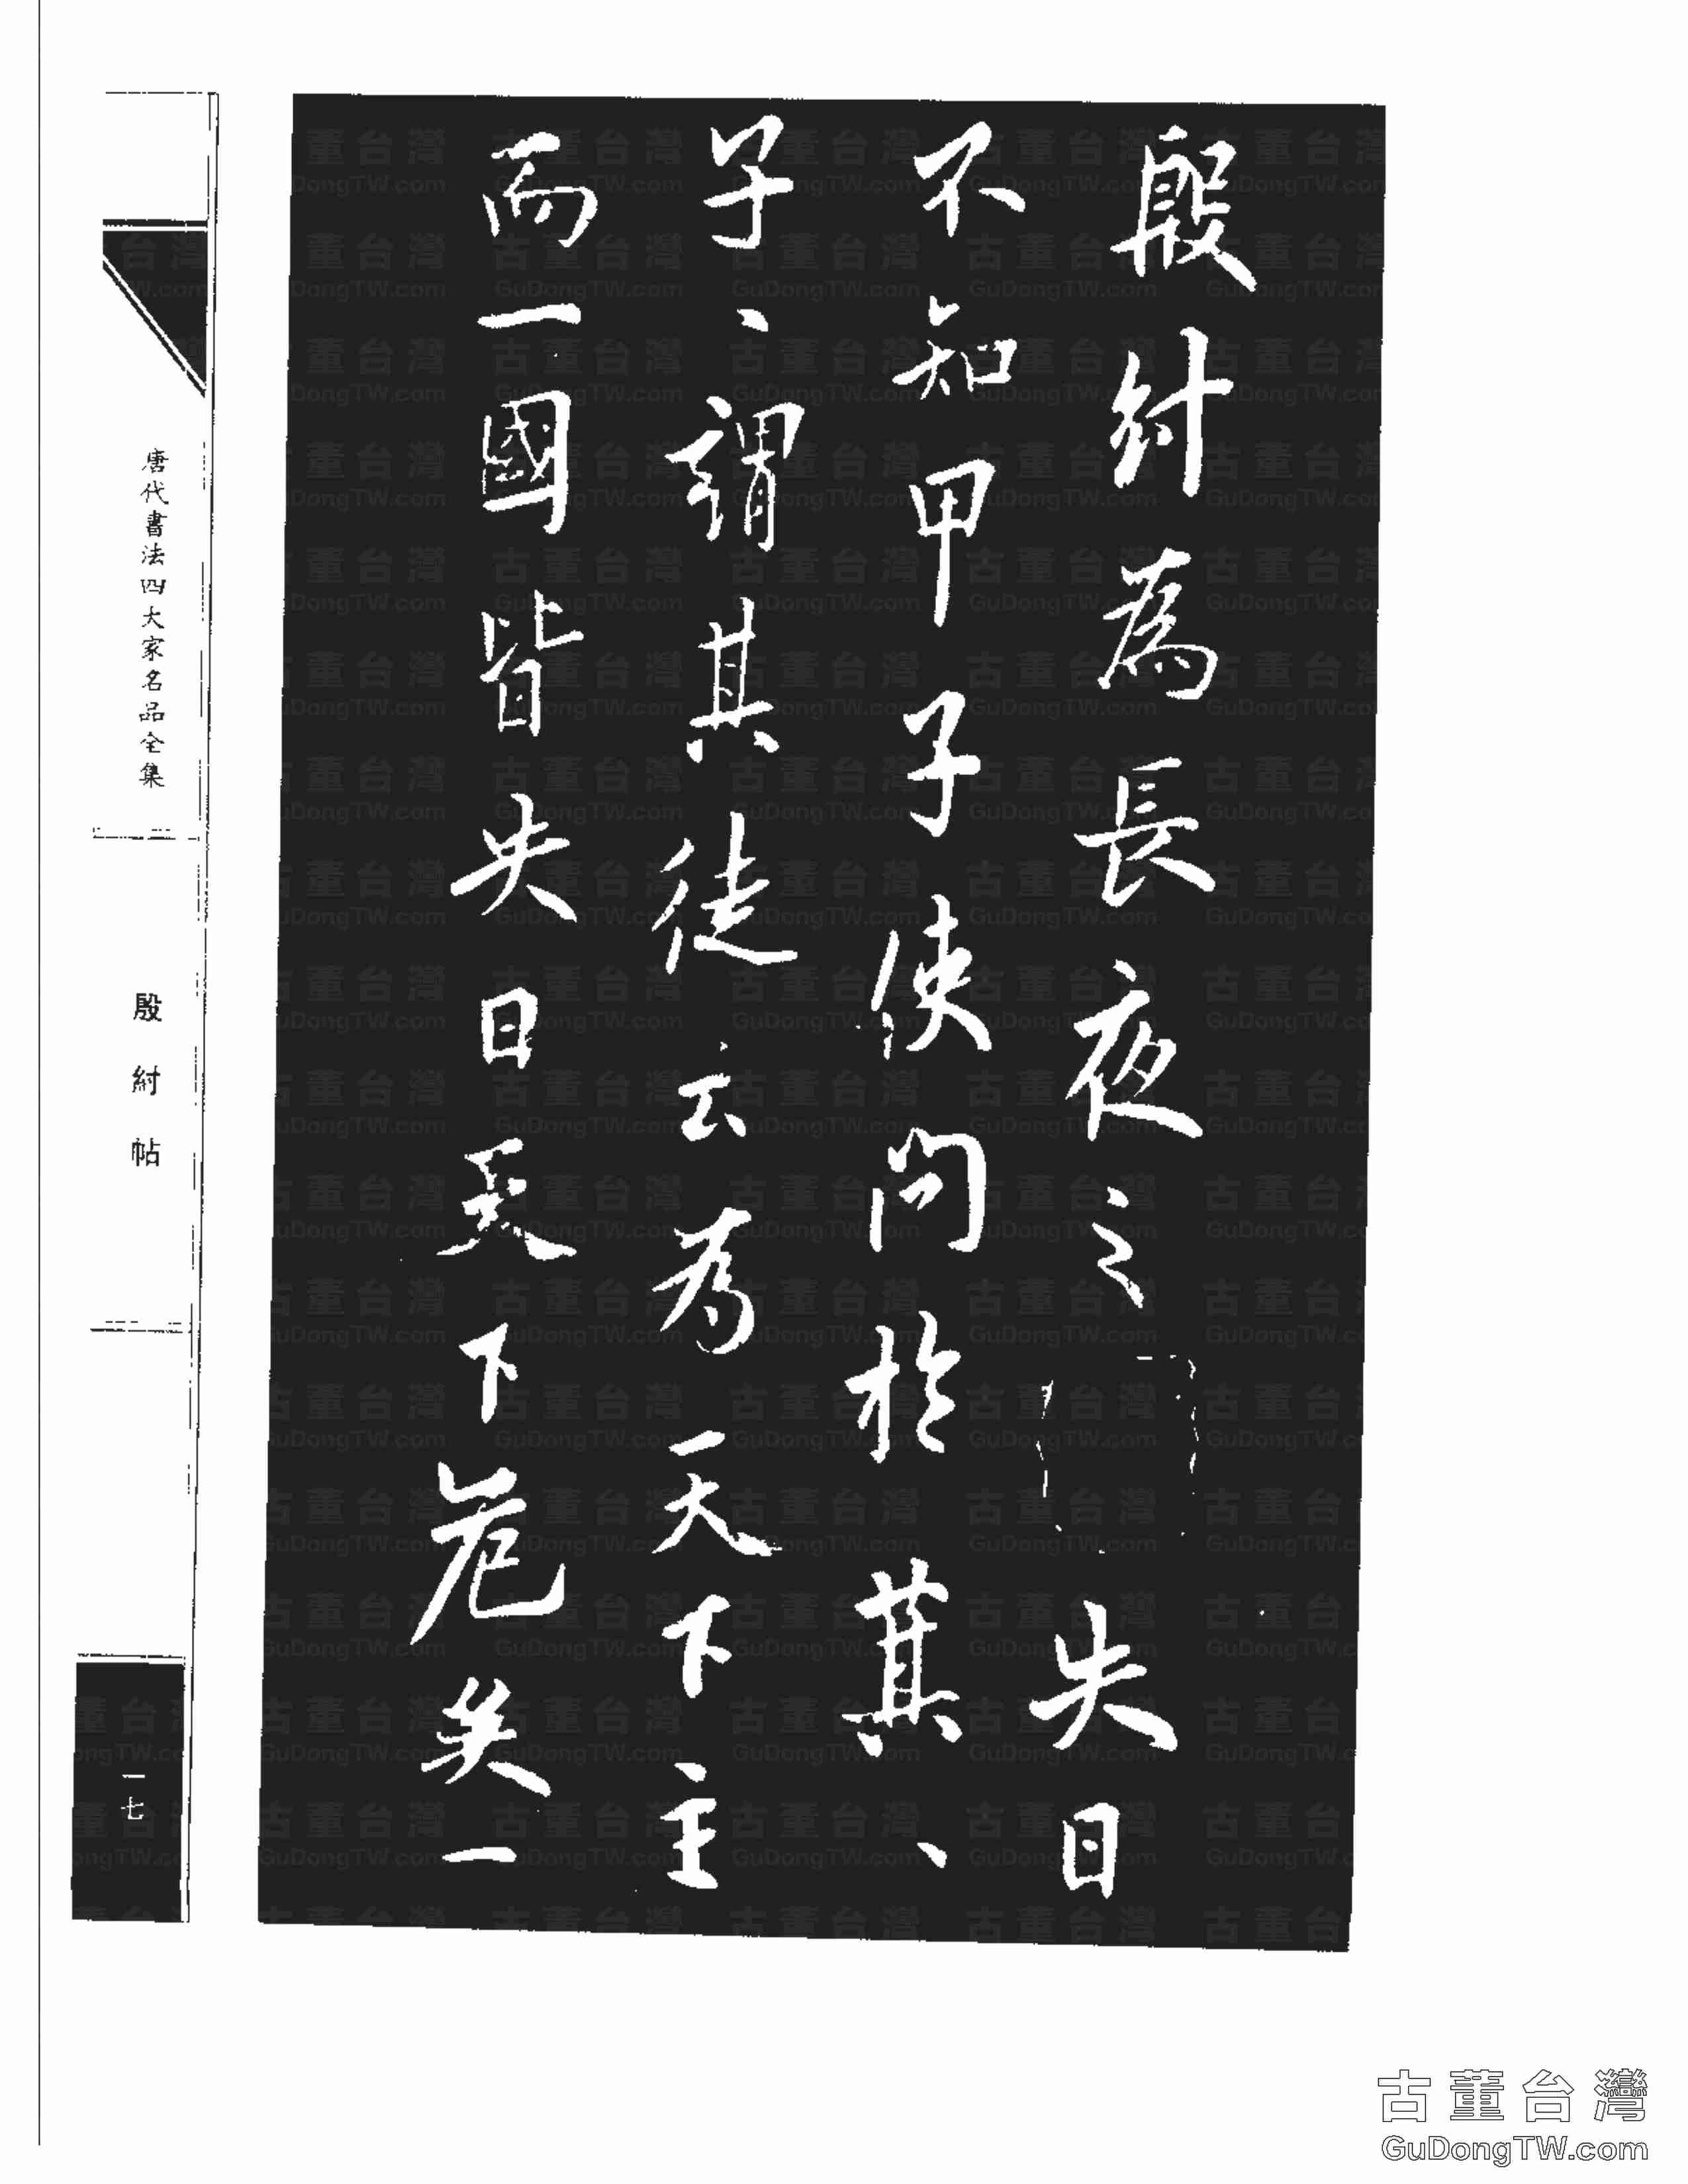 殷紂為長夜之失日
不知甲子使問於萁、
子、謂其徒云為天下主
而一國皆失日天下危矣一
唐代書法四大家名品全集
殷紂帖
一七
古董台灣
GuDongTW.com